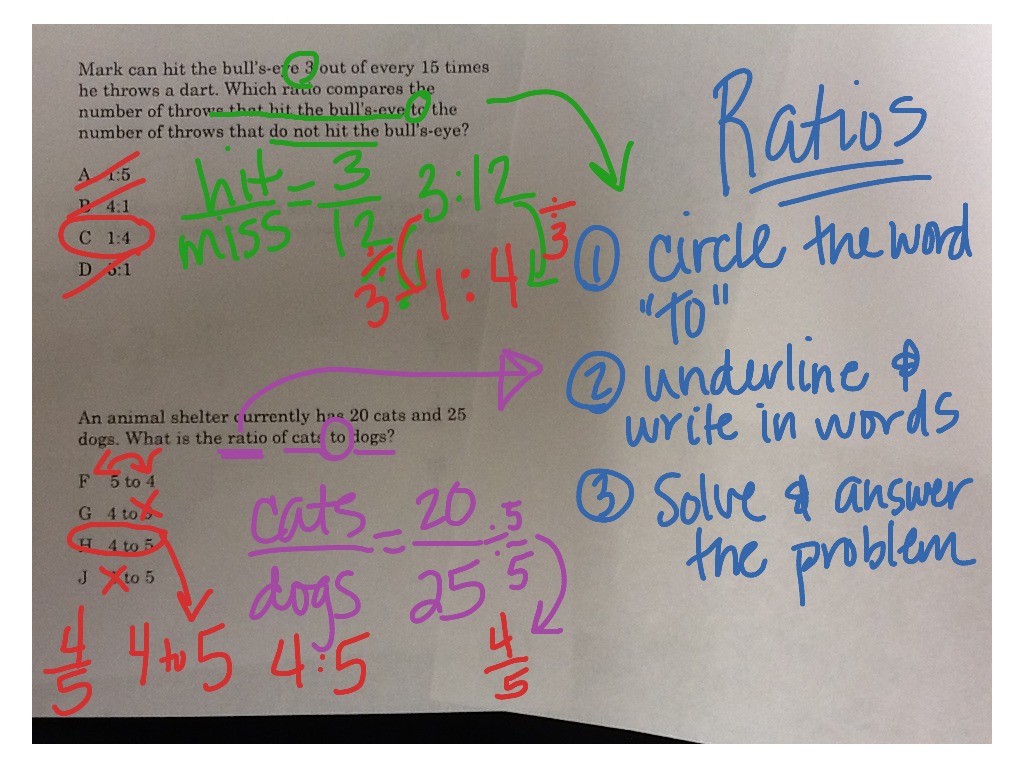 Mark can hit the bull's-eye 3 out of every 15 times
he throws a dart. Which ratio compares the
number of throws that hit the bull's-eye to the
number of throws that do not hit the bull's-eye?
A 1:5
B 4:1
C 1:4
D 5:1
hit = 3 3:12
miss 12
÷ 3
÷ 3
1:4
An animal shelter currently has 20 cats and 25
dogs. What is the ratio of cats to dogs?
F 5 to 4
G 4 to
H 4 to 5
J to 5
cats = 20 ÷ 5
dogs 25 ÷ 5
4
5
4 to 5
4:5
4
5
Ratios
1 circle the word
"TO"
2 underline &
write in words
3 Solve & answer
the problem